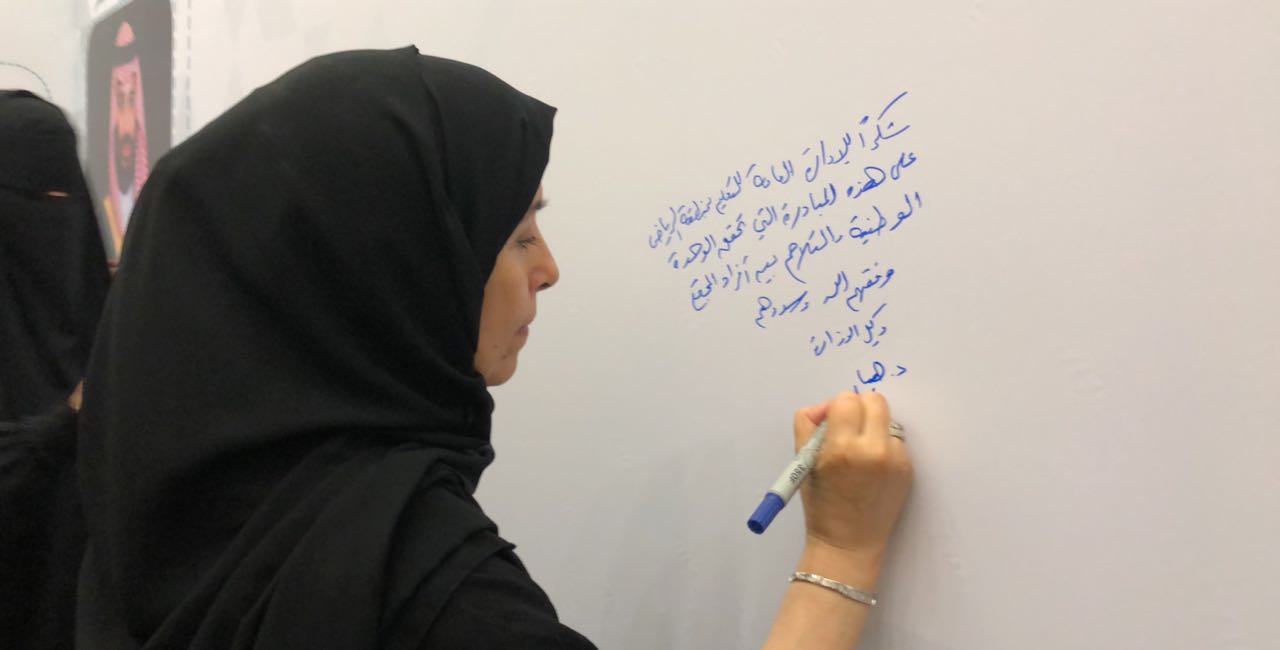 شكراً للإدارة العامة للتعليم بمنطقة الرياض
على هذه المبادرة التي تحقق الوحدة
الوطنية والتلاحم بين أفراد المجتمع
وفقهم الله وسددهم
وكيل الوزارة
د. هيا
350F